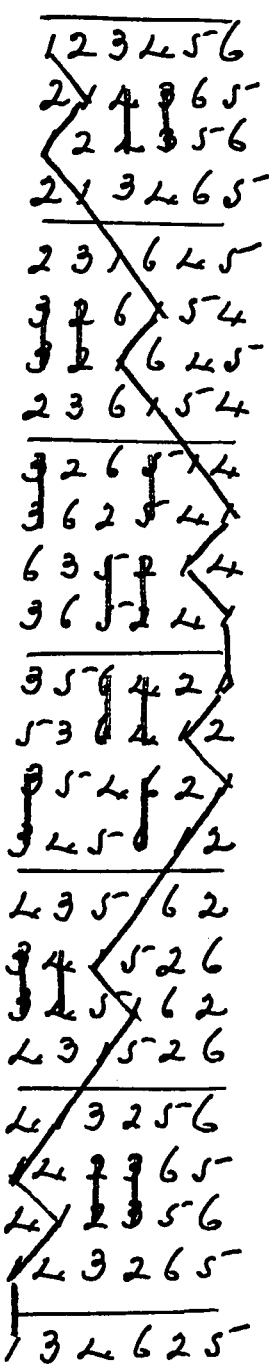 1 2 3 4 5 6
2 1 4 3 6 5
1 2 4 3 5 6
2 1 3 4 6 5
2 3 1 6 4 5
3 2 6 1 5 4
3 2 1 6 4 5
2 3 6 1 5 4
3 2 6 5 1 4
3 6 2 5 4 1
6 3 5 2 1 4
3 6 5 2 4 1
3 5 6 4 2 1
5 3 6 4 1 2
3 5 4 6 2 1
3 4 5 6 1 2
4 3 5 1 6 2
3 4 1 5 2 6
3 4 5 1 6 2
4 3 1 5 2 6
4 1 3 2 5 6
1 4 2 3 6 5
4 1 2 3 5 6
1 4 3 2 6 5
1 3 4 6 2 5